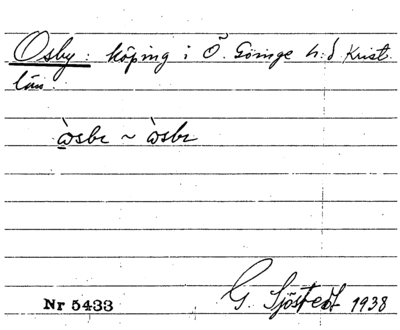 Osby: köping i Ö. Göinge h:d Krist.
län.
àsbr ~ àsbr
Nr 5433 G. Sjöstedt 1938